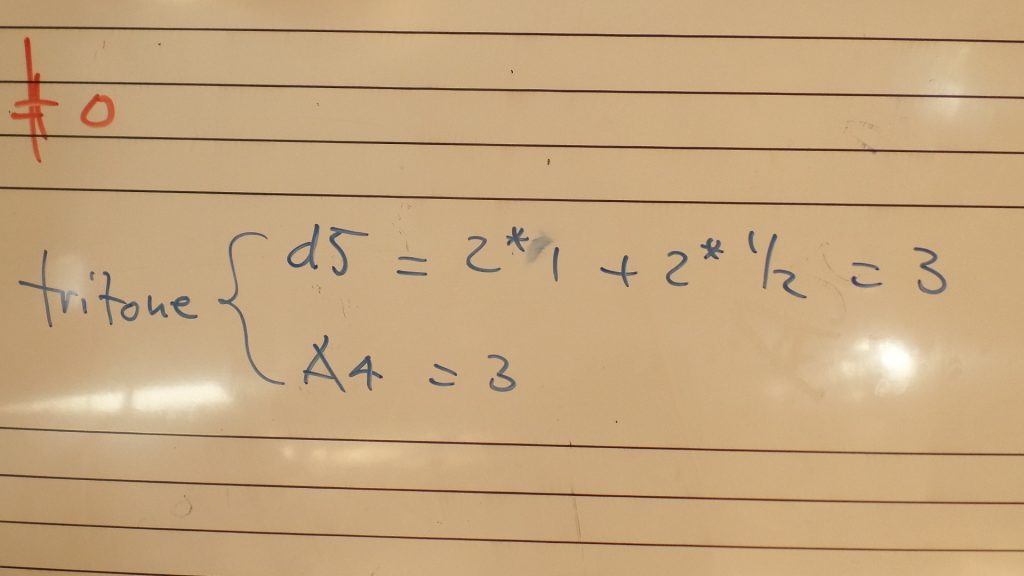 ‡ 0
tritone { d5 = 2*1 + 2*1/2 = 3
A4 = 3